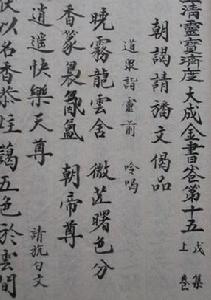 清靈寶濟度大成金書卷第十五 戊集上
朝謁請文偈品
道衆詣靈前 吟
曉霧龍雲舍 微茫曙色分
香篆晨 朝帝尊
逍遙快樂天尊 請文
伏以名香恭炷藹五色於雲間